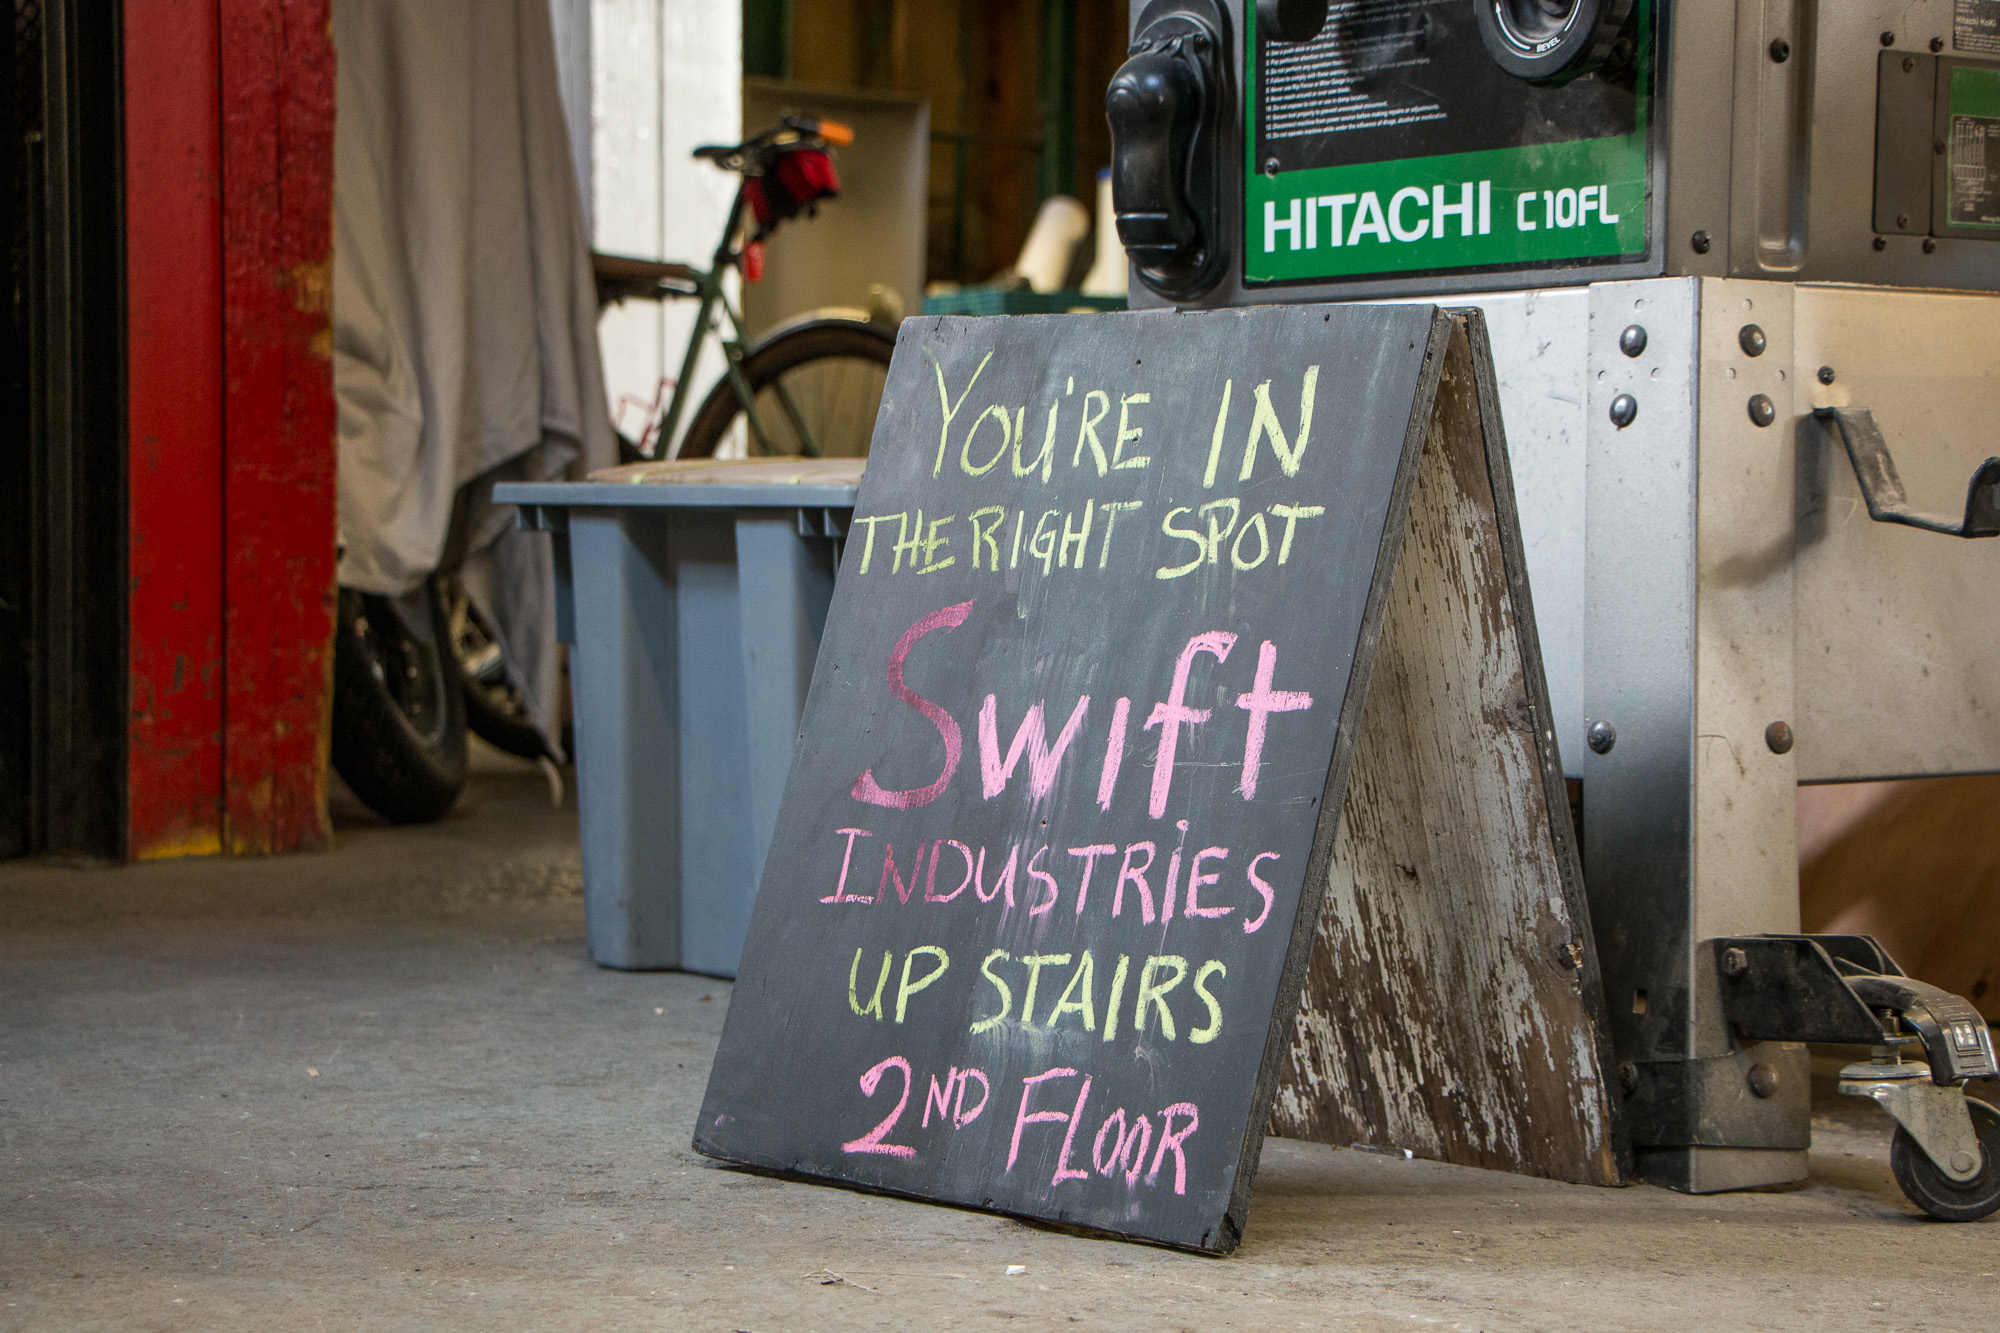 YOU'RE IN
THE RIGHT SPOT
Swift
INDUSTRIES
UP STAIRS
2ND FLOOR
HITACHI C10FL
BEVEL
Hitachi Koki